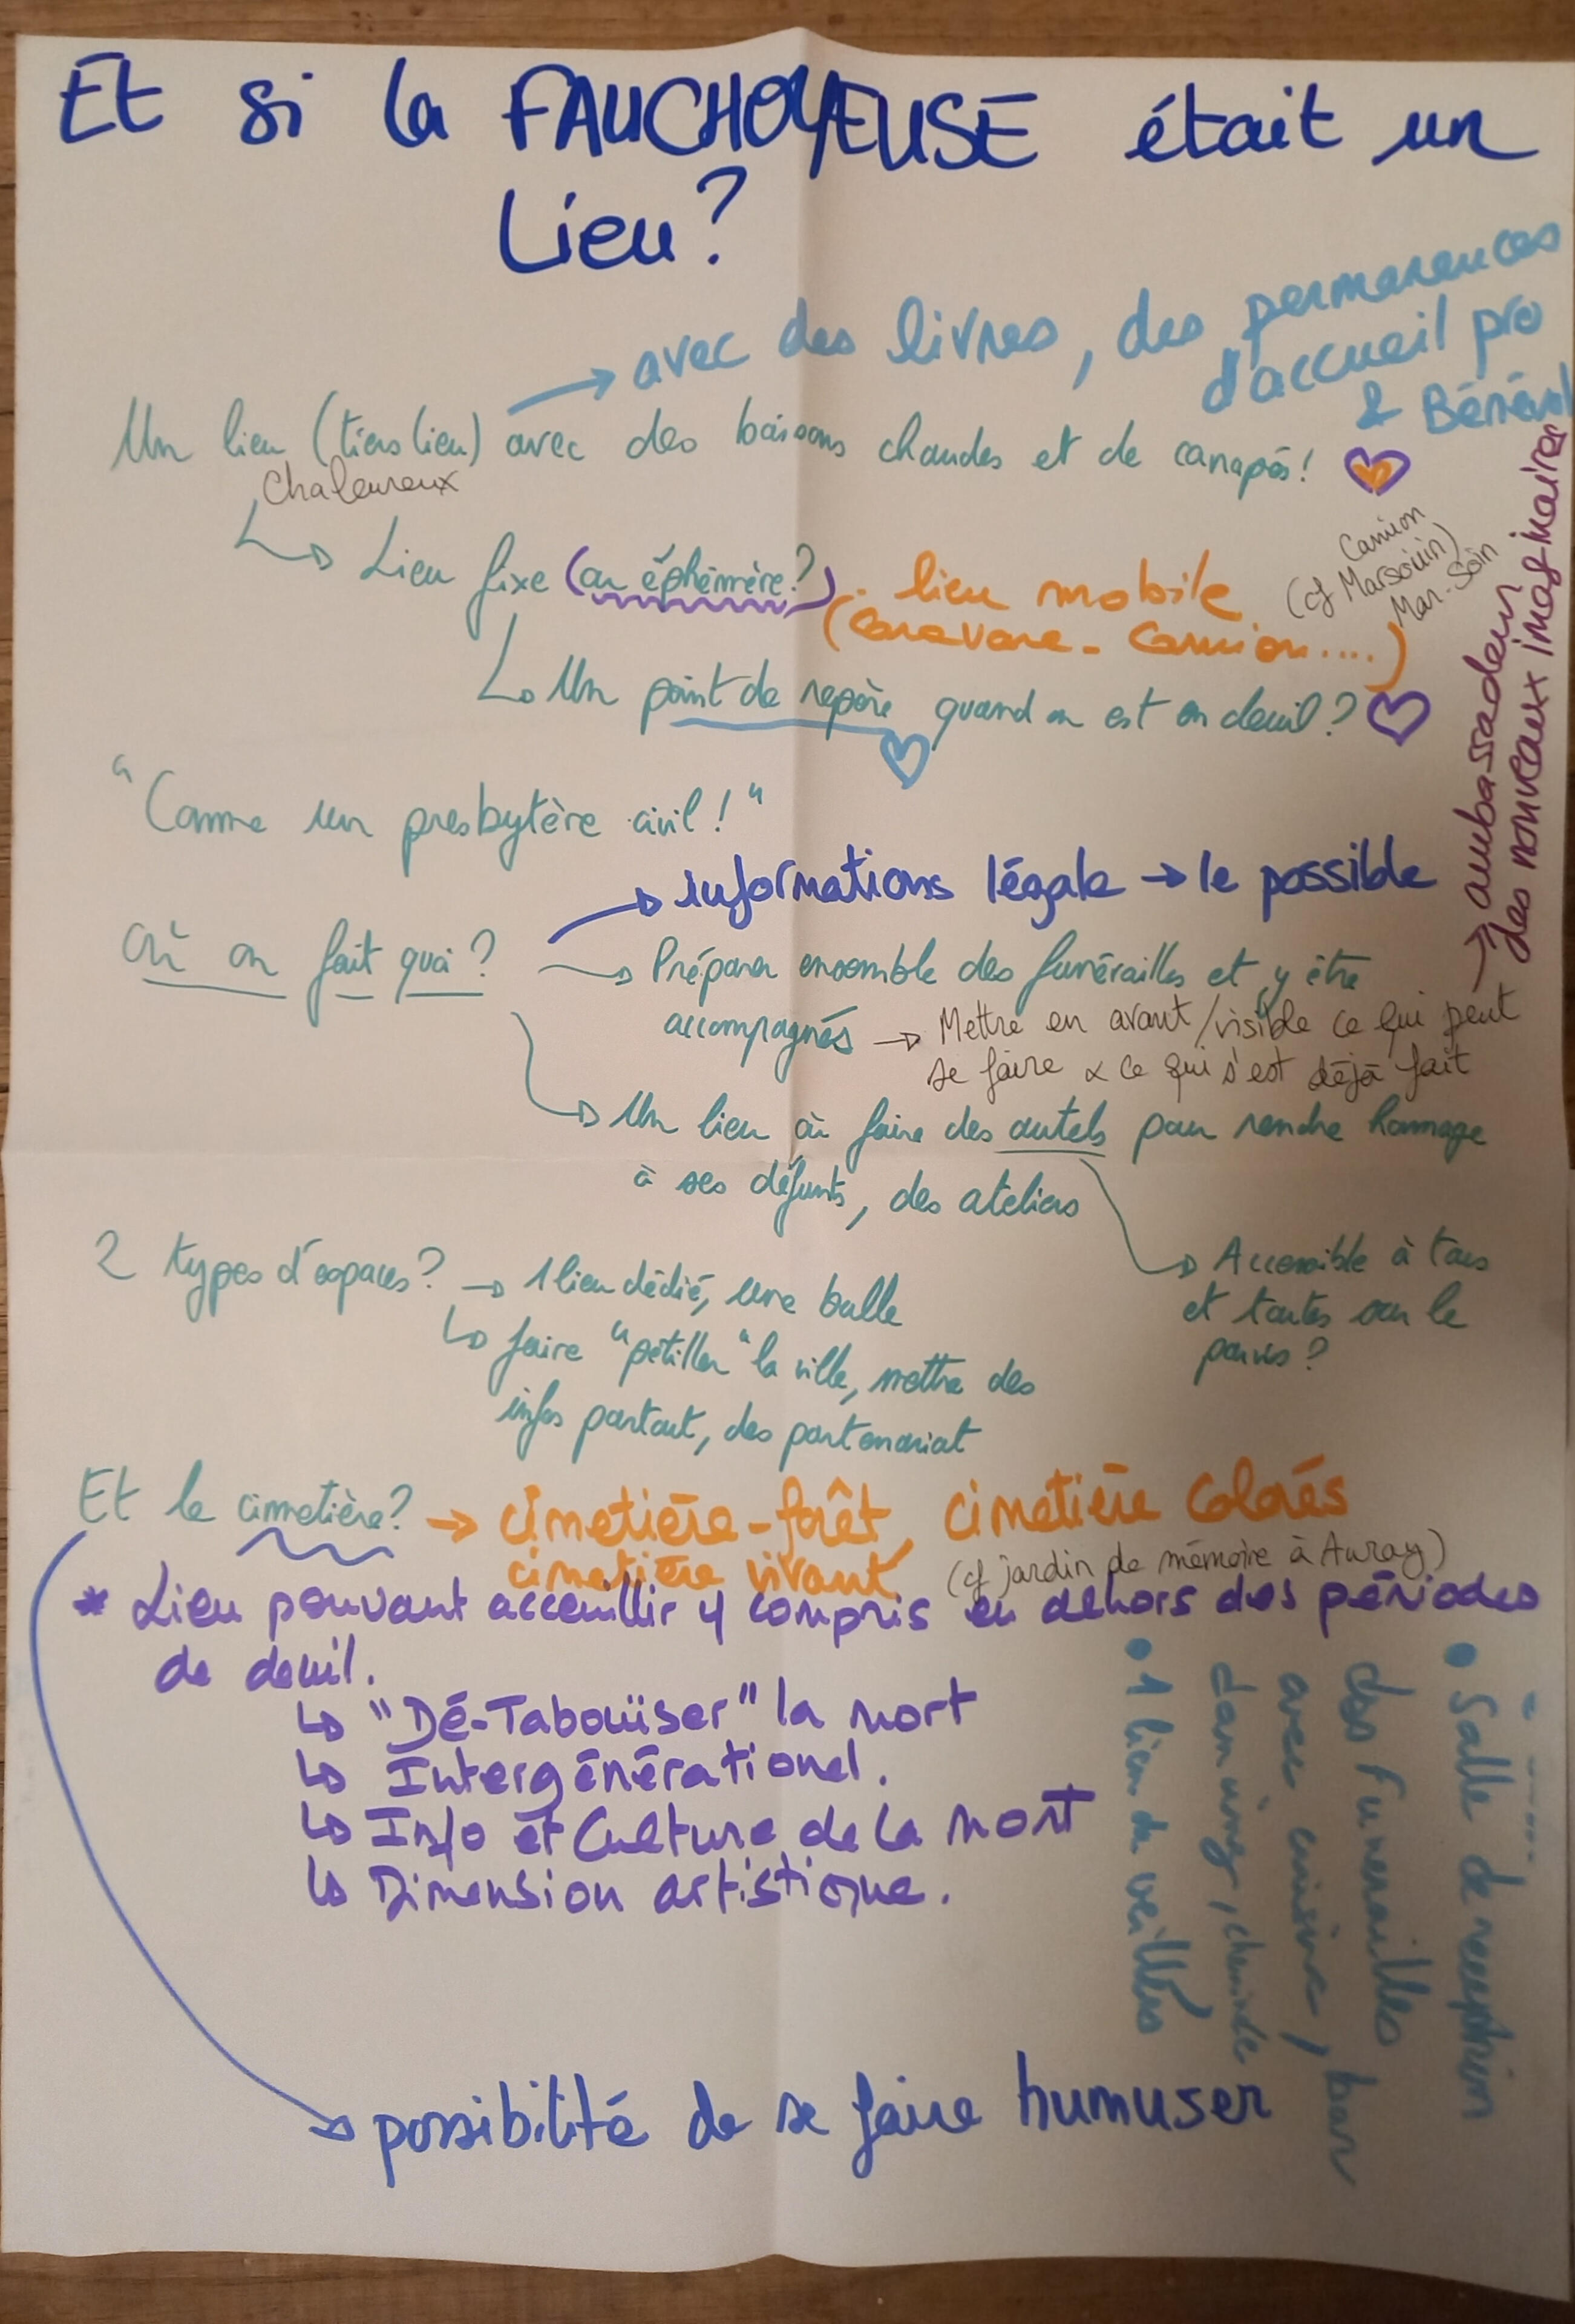 Et si la FAUCHOYEUSE était un
Lieu?
→ avec des livres, des permanences
d'accueil pro
& Bénévol
Un lieu (tiers lieu) avec des boissons chaudes et de canapés!
Chaleureux
↳ Lieu fixe (ou éphémère?). lieu mobile
(Caravane - Camion....)
Camion
(cf Marsouin)
Mar-Soin
↳ Un point de repère quand on est en deuil?
"Comme un presbytère civil!"
→ informations légale → le possible
Où on fait quoi?
→ Préparer ensemble des funérailles et y être
accompagnés → Mettre en avant/visible ce qui peut
se faire & ce qui s'est déjà fait
→ ambassadeur
des nouveaux imaginaires
→ Un lieu où faire des autels pour rendre hommage
à ses défunts, des ateliers
→ Accessible à tous
et toutes sur le
parvis?
2 types d'espaces? → 1 lieu dédié, une bulle
↳ faire "pétiller" la ville, mettre des
infos partout, des partenariat
Et le cimetière? → cimetière-forêt, cimetière colorés
cimetière vivant (cf jardin de mémoire à Auray)
* Lieu pouvant acceuillir y compris en dehors des périodes
de deuil.
↳ "Dé-Taboüiser" la mort
↳ Intergénérationel.
↳ Info et Culture de la mort
↳ Dimension artistique.
• Salle de reception
des funerailles
avec cuisine, bar
dancing, cheminée
• 1 lieu de veillées
→ possibilité de se faire humuser